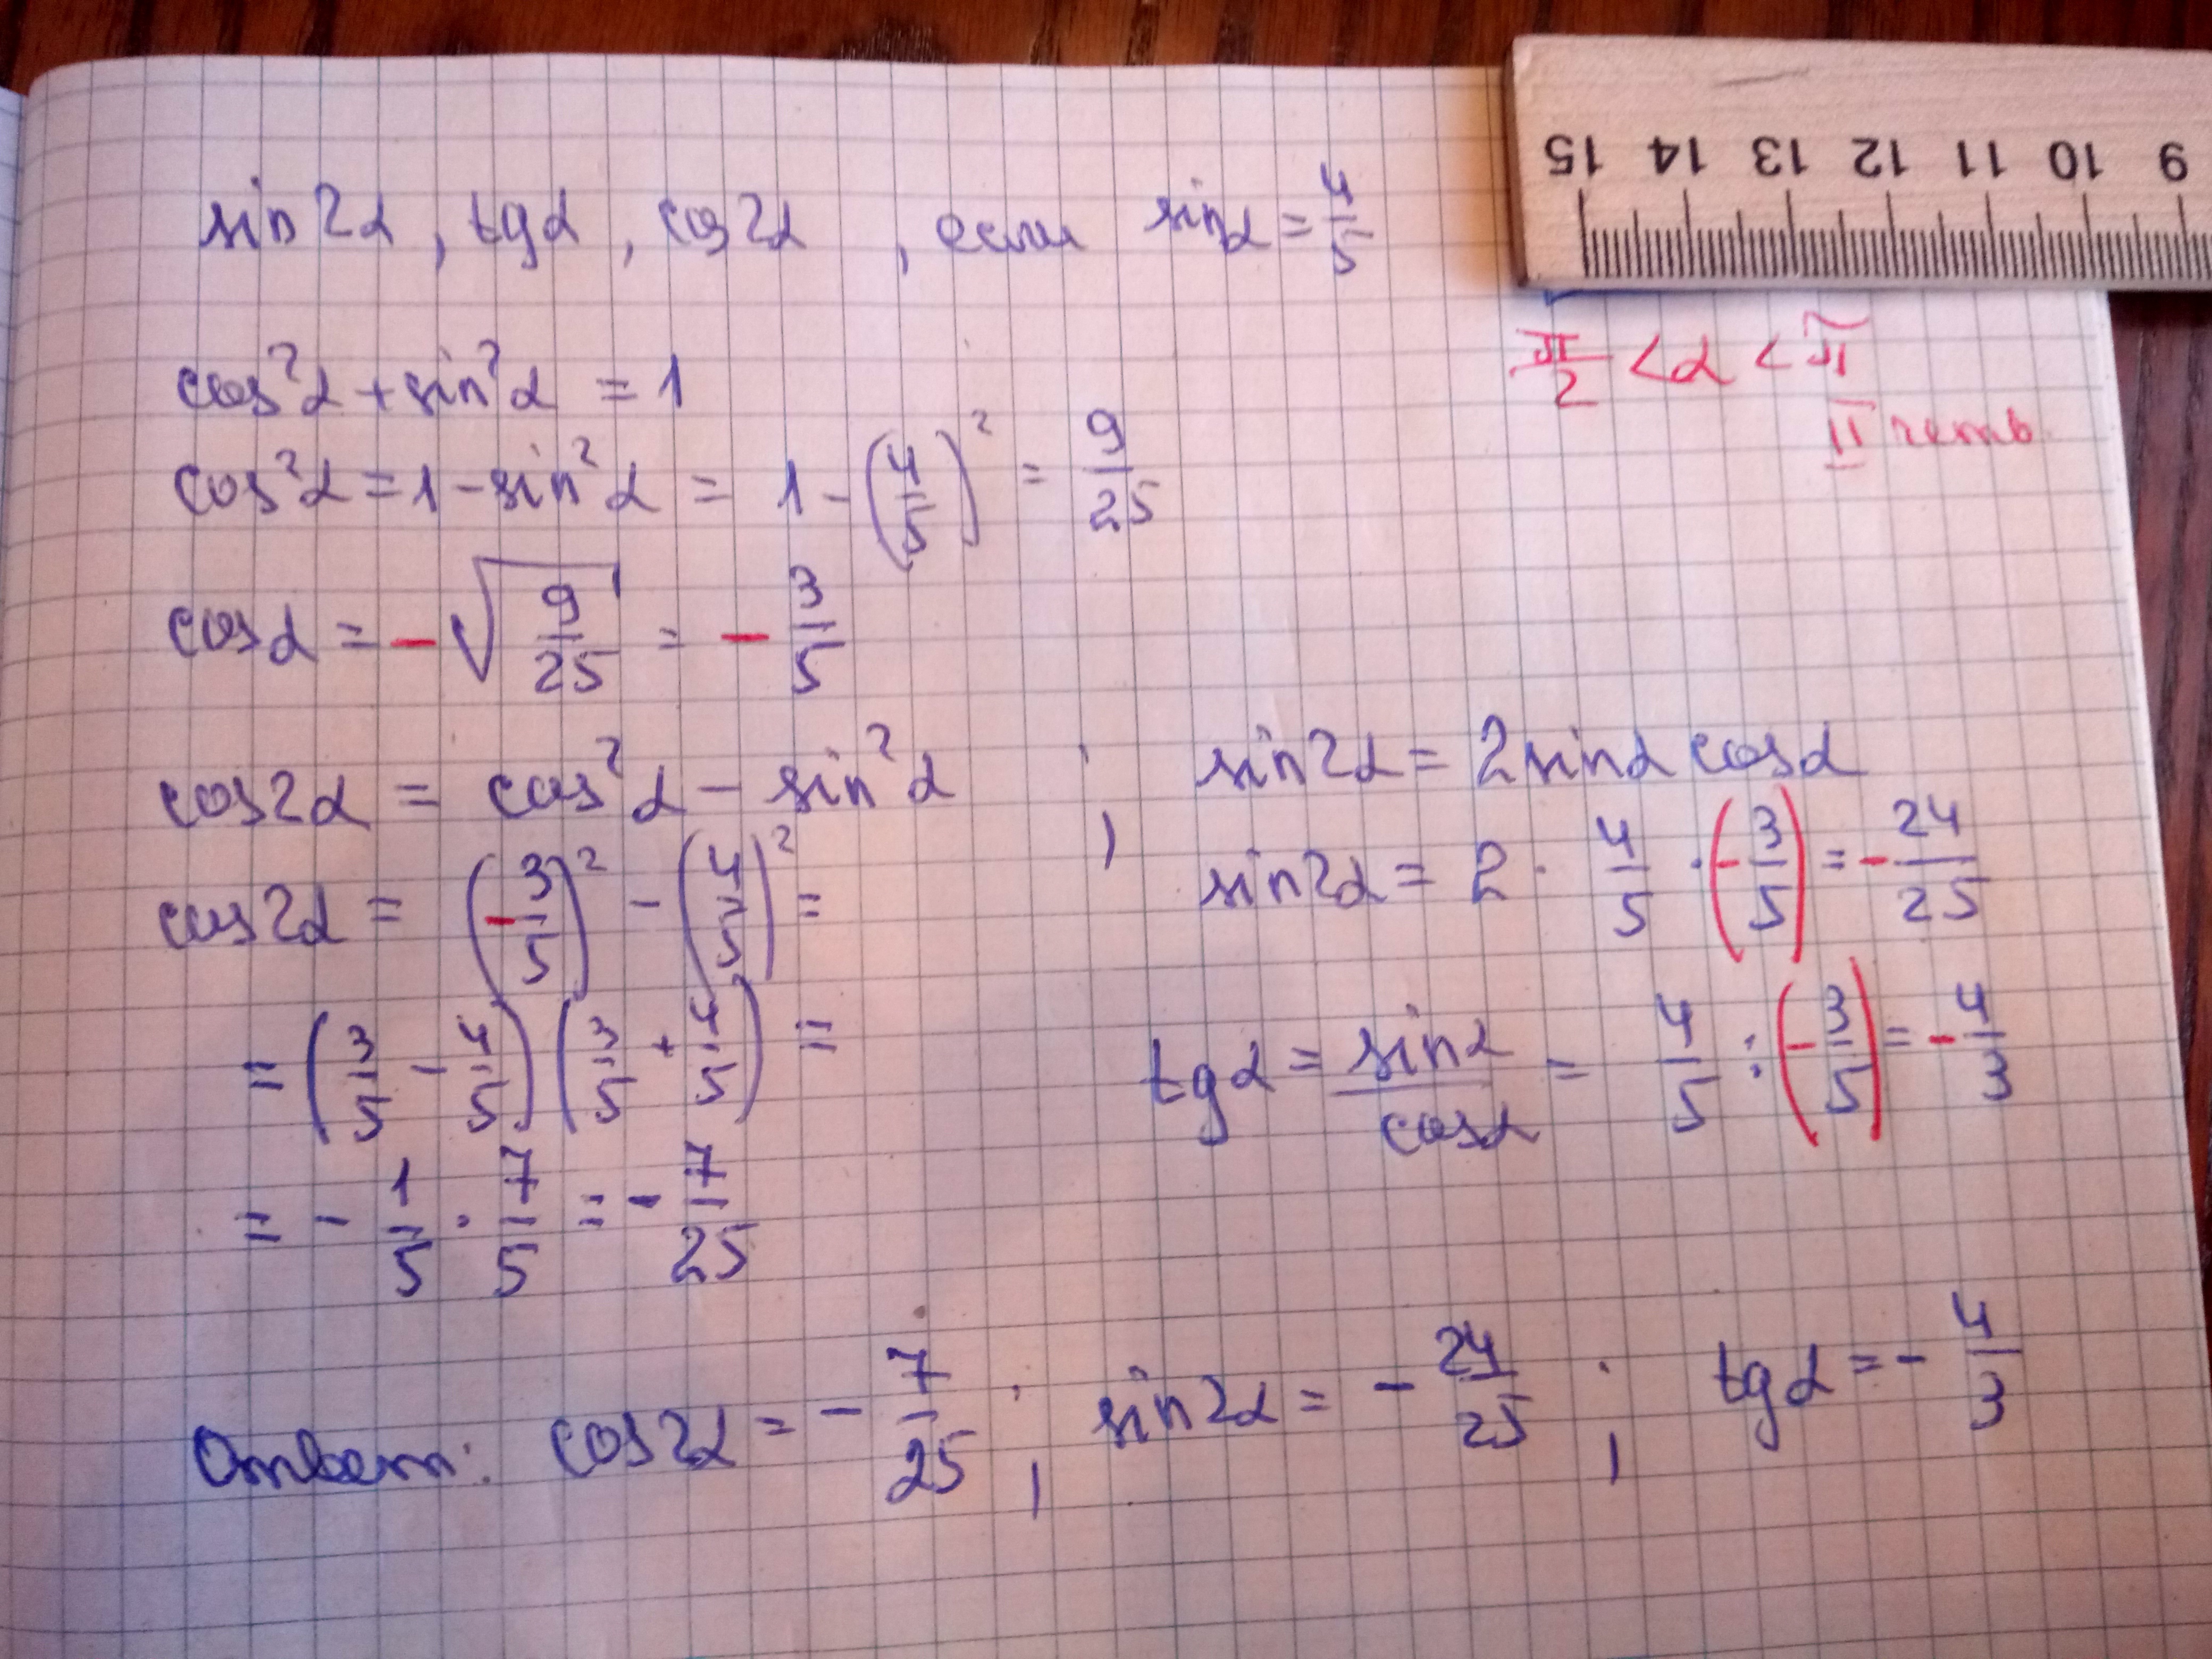 15 14 13 12 11 10 9
sin2α, tgα, cos2α, если sinα = 4/5
π/2 < α < π
II четв
cos²α + sin²α = 1
cos²α = 1 - sin²α = 1 - (4/5)² = 9/25
cosα = -√(9/25) = -3/5
cos2α = cos²α - sin²α ;
cos2α = (-3/5)² - (4/5)² =
= (3/5 - 4/5)(3/5 + 4/5) =
= -1/5 · 7/5 = -7/25
sin2α = 2sinα cosα
sin2α = 2 · 4/5 · (-3/5) = -24/25
tgα = sinα/cosα = 4/5 : (-3/5) = -4/3
Ответ: cos2α = -7/25 ; sin2α = -24/25 ; tgα = -4/3